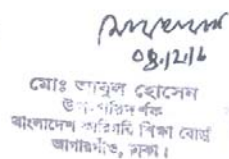 ০৪/১২/১৬
মোঃ আবুল হোসেন
উপ-পরিদর্শক
বাংলাদেশ কারিগরি শিক্ষা বোর্ড
আগারগাঁও, ঢাকা।